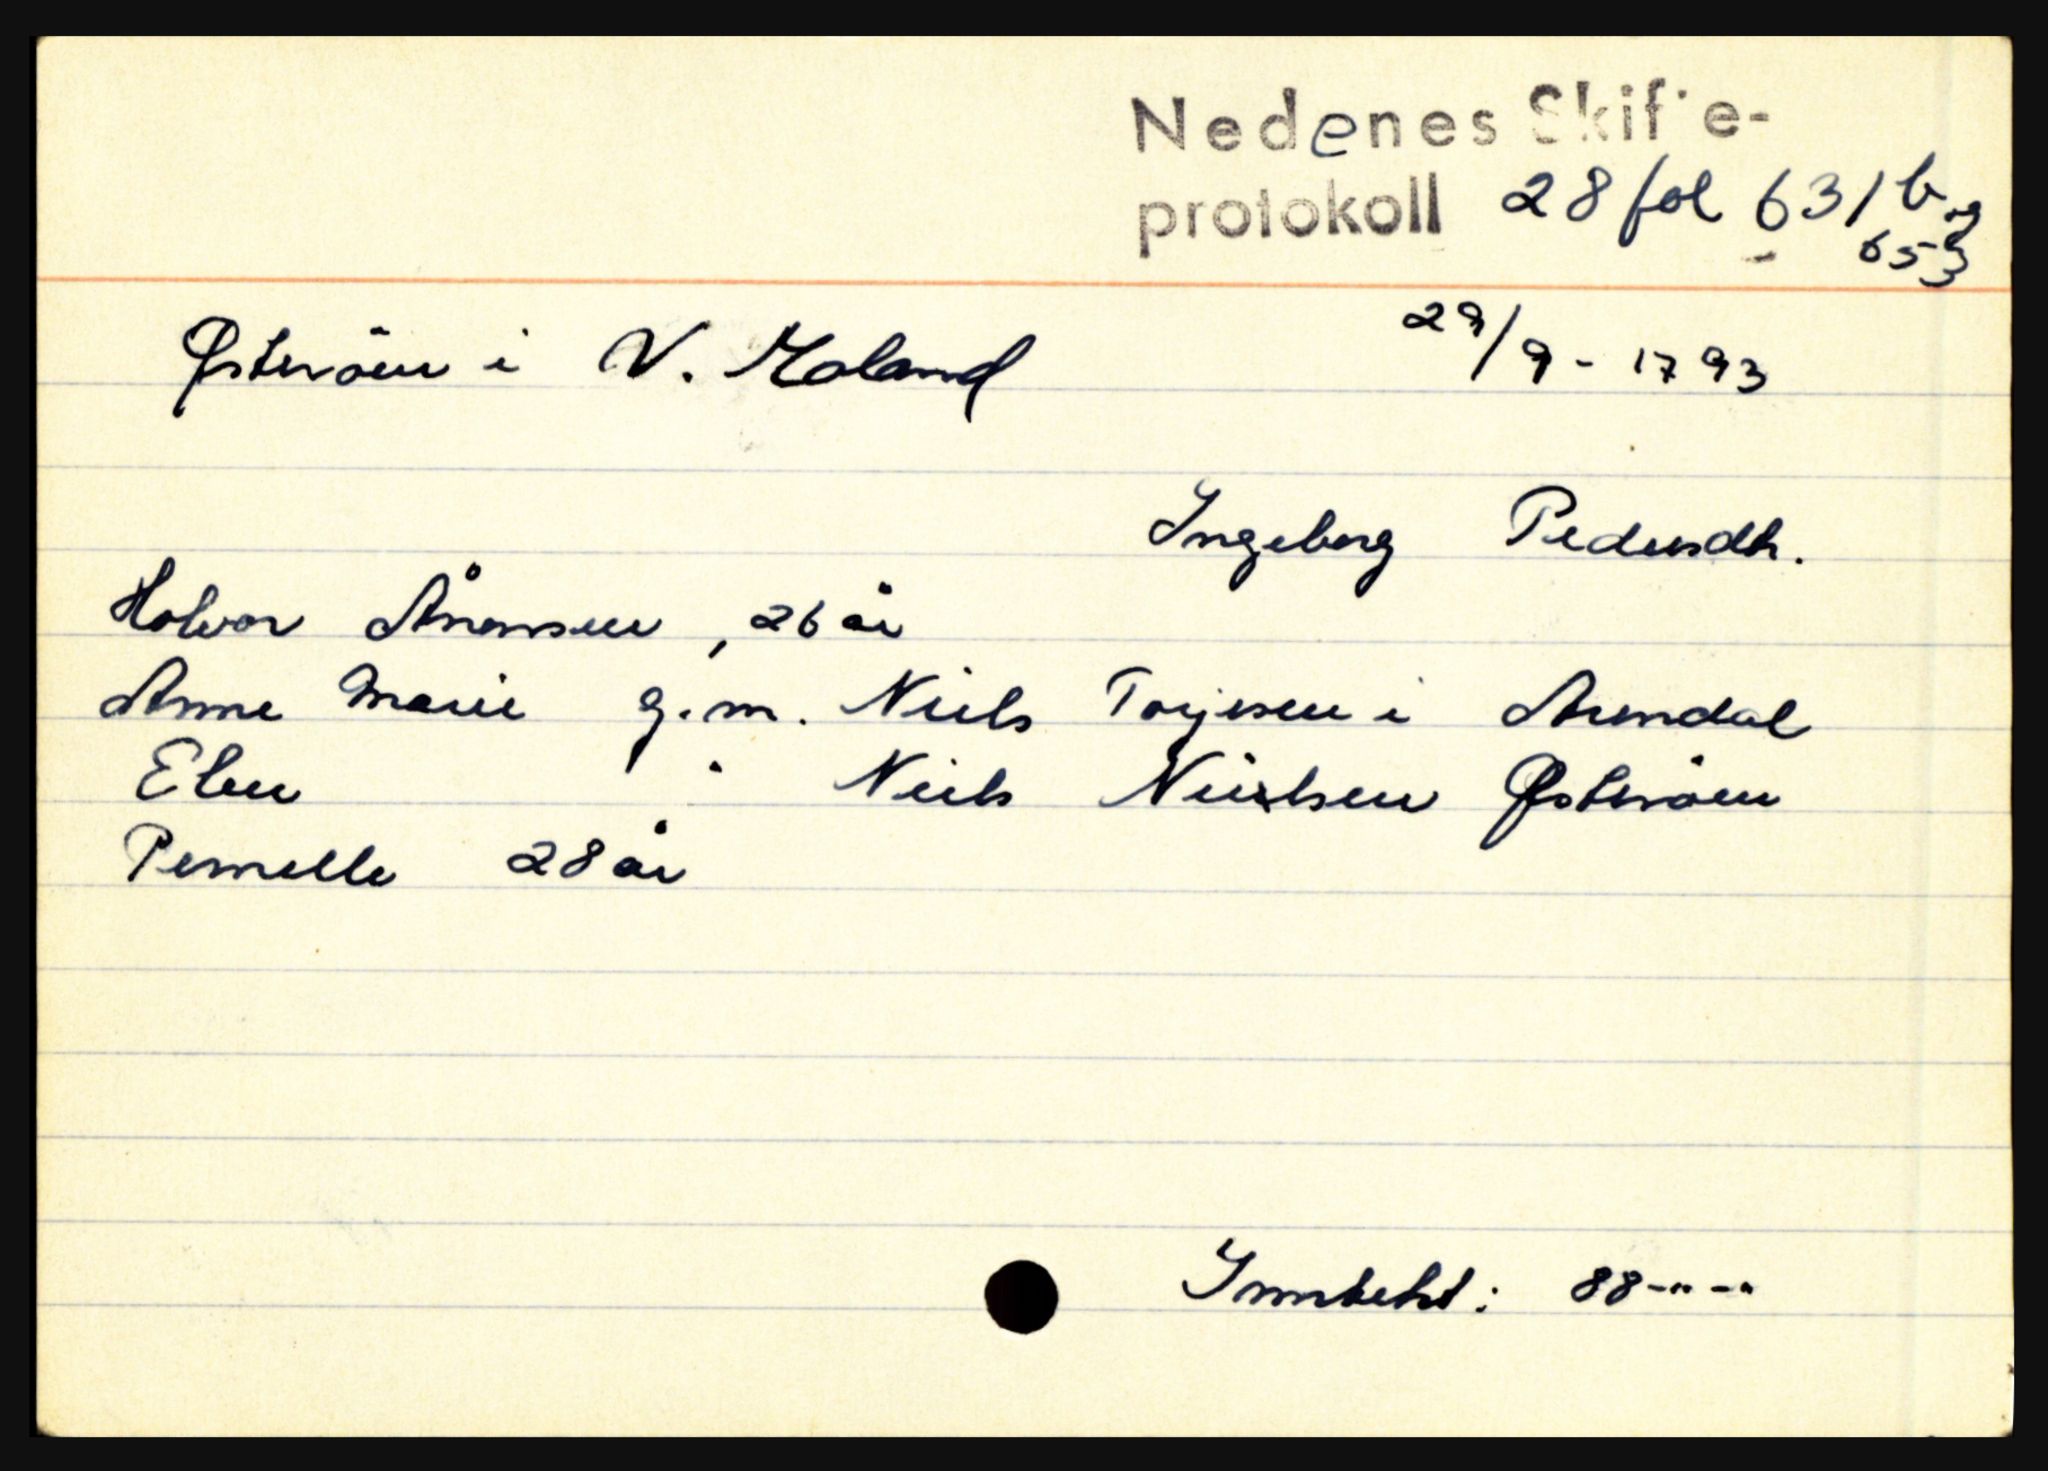 Nedenes Skifte-
protokoll 28 fol 631 b og
653
Østeröen i V. Moland 29/9 - 1793
Ingeborg Pedersdtr.
HalvorÅnonsen, 26 år
Anne Marie g.m. Niels Torjesen i Arendal
Elen " Niels Nielsen Østeröen
Pernelle 28 år
88-"-"